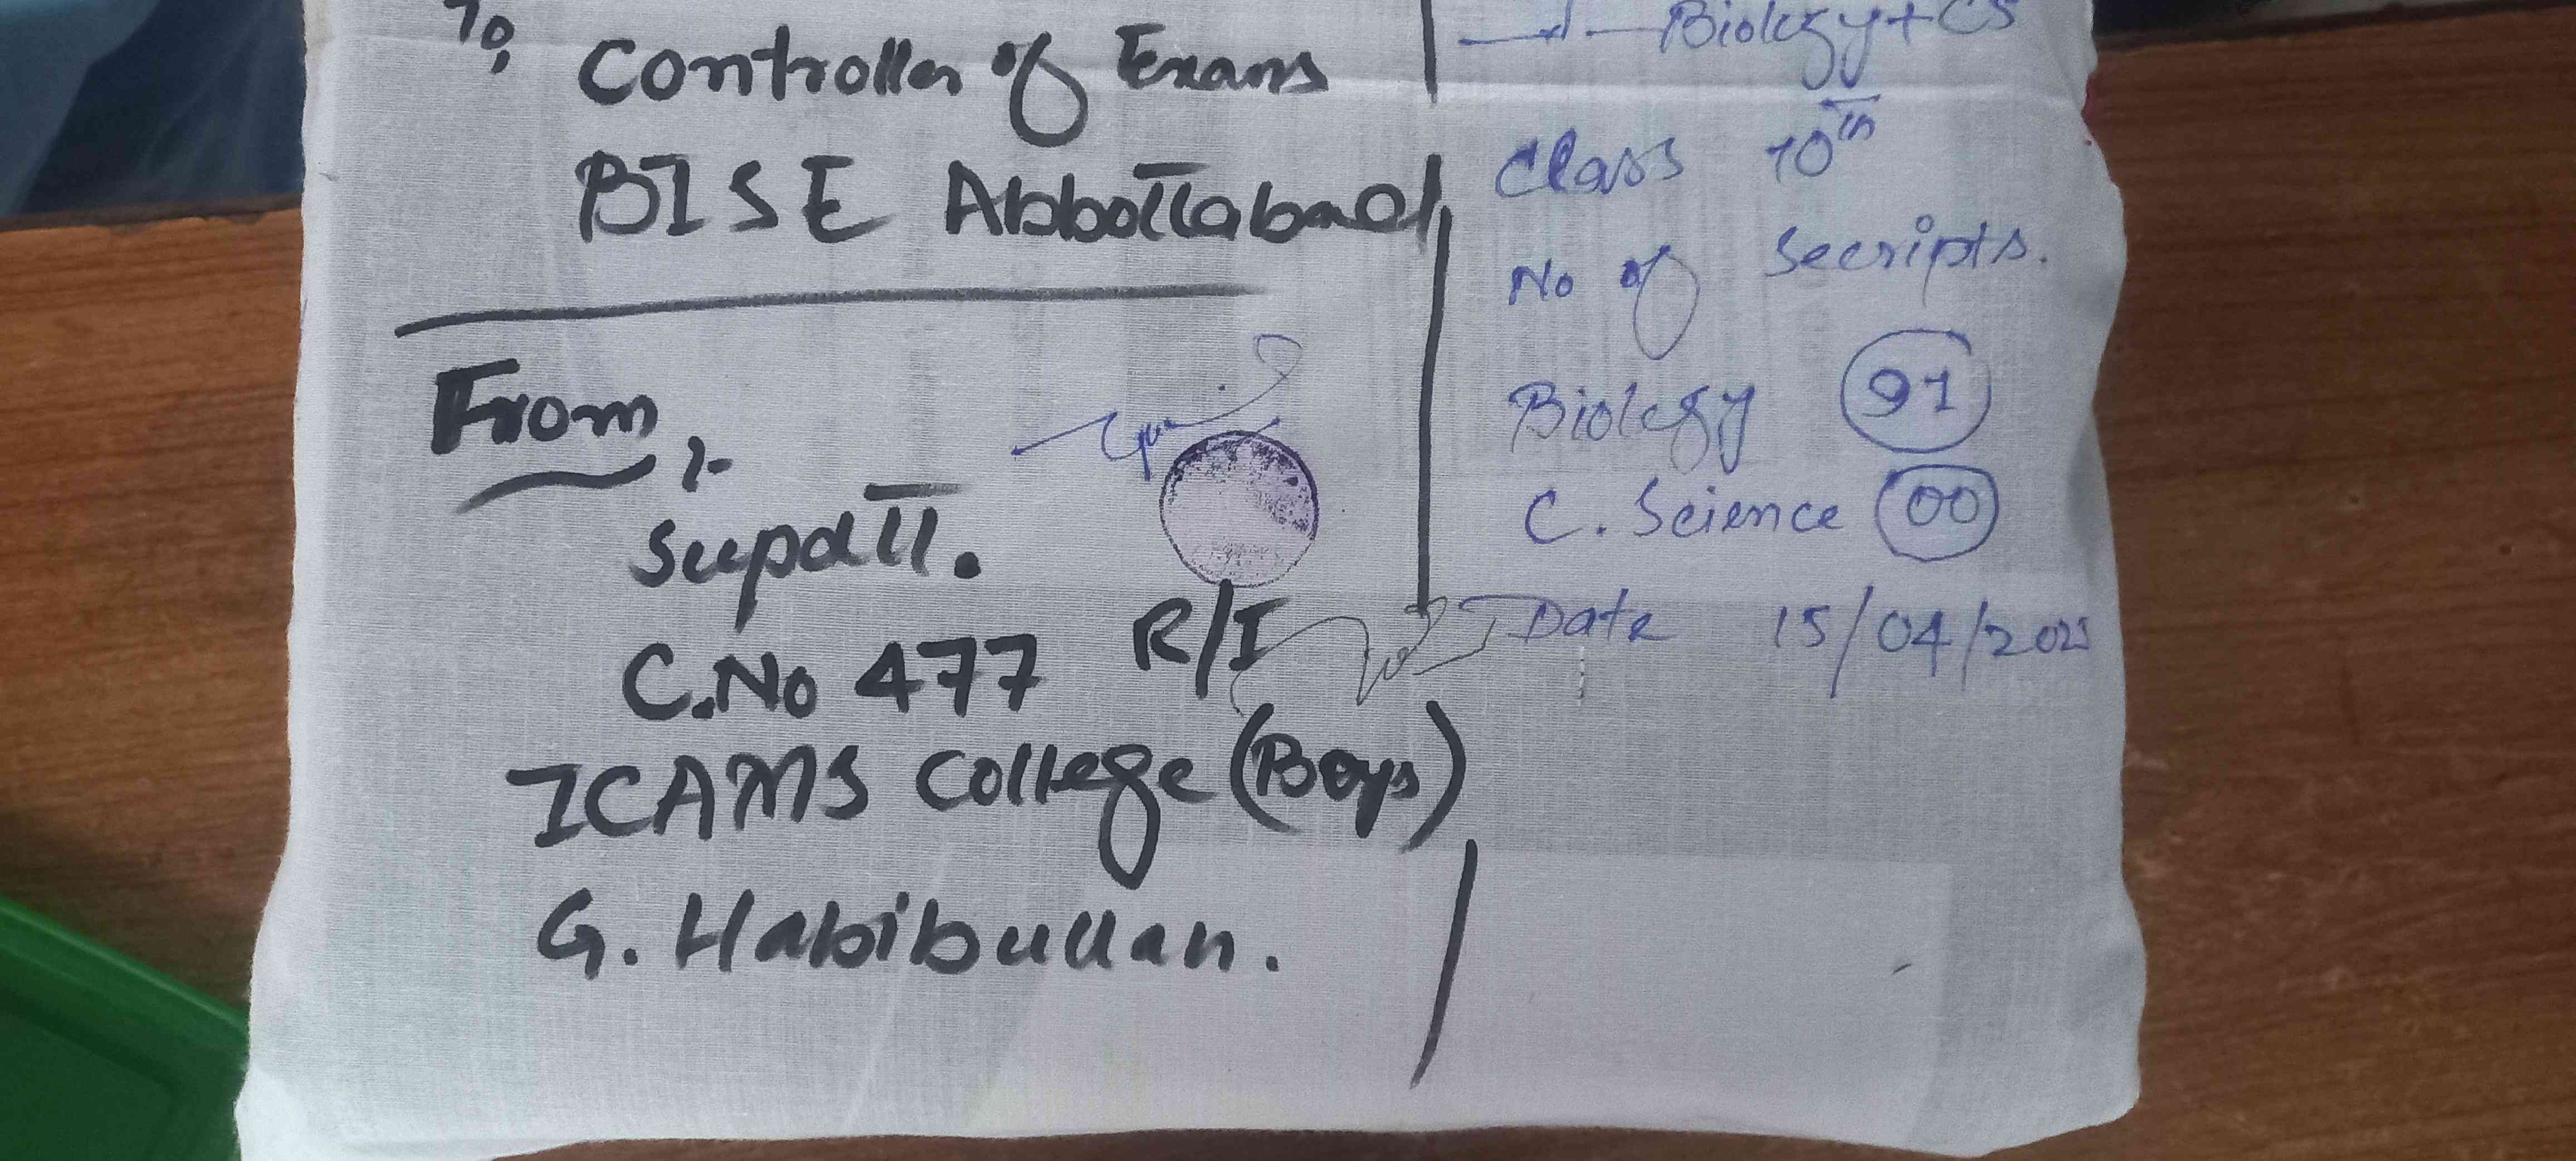 To,
Controller of Exams
BISE Abbottabad,
From,:-
Supdtt.
C.No 477 R/I
ICAMS College (Boys)
G. Habibullah.
Biology + CS
Class 10th
No of Secripts.
Biology 91
C. Science 00
Date 15/04/2025